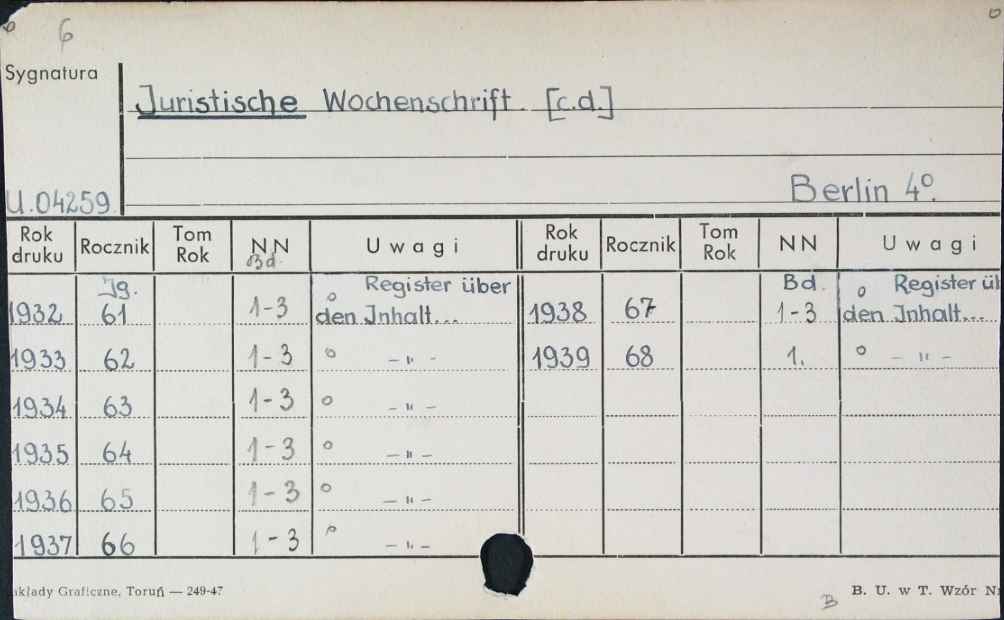 6
Sygnatura
Juristische Wochenschrift. [c.d.]
U.04259
Berlin 4º.
Rok druku Rocznik Tom Rok NN Bd. Uwagi Rok druku Rocznik Tom Rok NN Uwagi
1932 Jg. 61 1-3 o Register über den Inhalt... 1938 67 Bd. 1-3 o Register ü den Inhalt...
1933 62 1-3 o — " - 1939 68 1. o — " —
1934 63 1-3 o — " —
1935 64 1-3 o — " —
1936 65 1-3 o — " —
1937 66 1-3 o — " —
kłady Graficzne, Toruń — 249-47
B
B. U. w T. Wzór N